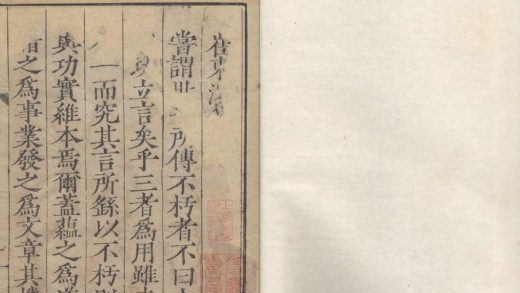 崔東洲
嘗謂 所傳不朽者不曰
立言矣乎三者爲用雖
一而究其言所繇以不朽則
與功實維本焉爾蓋蘊之爲道
之爲事業發之爲文章其